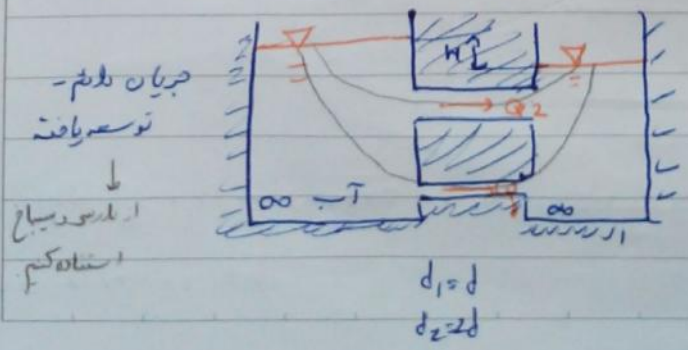 جریان دائم -
توسعه یافته
↓
از دارسی ویسباخ
استفاده کنیم
H
Q2
∞ آب
∞
d₁ = d
d₂ = 2d